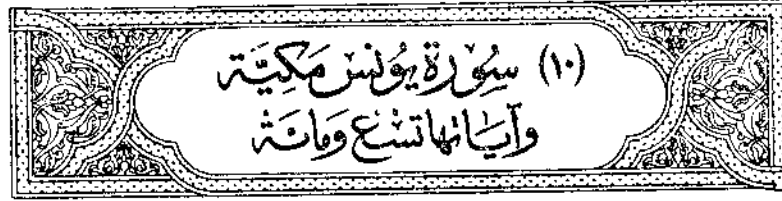 (١٠) سُورَة يُونسَ مَكِيَّة
وَآيَاتهَا تسْع وَمائة